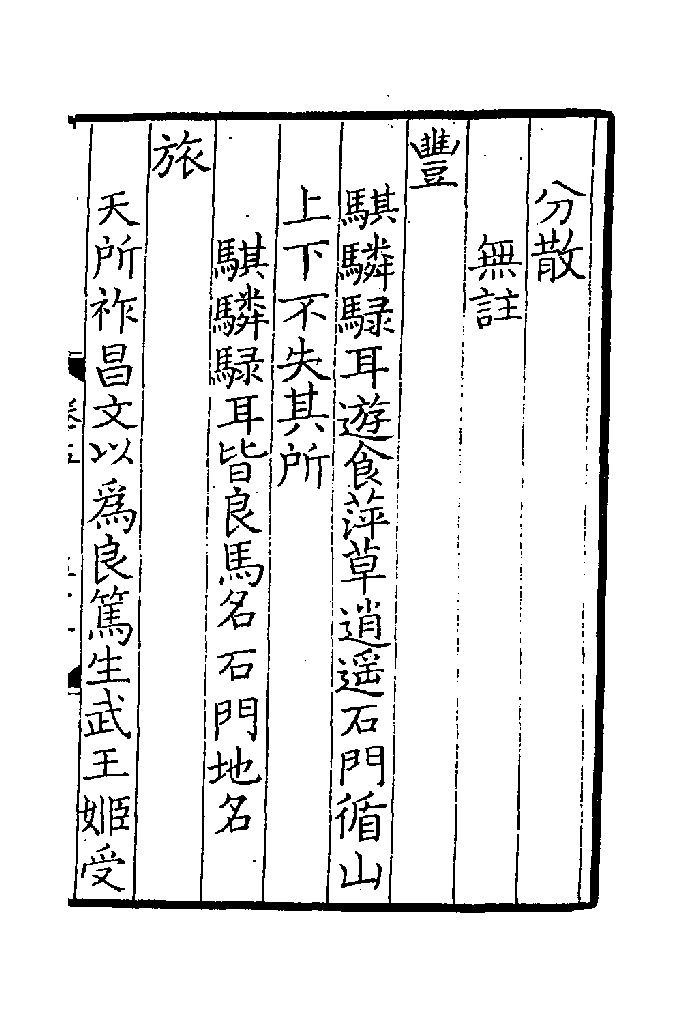 分散
無註
豐
騏驎騄耳遊食萍草逍遥石門循山
上下不失其所
騏驎騄耳皆良馬名石門地名
旅
天所祚昌文以爲良篤生武王姬受